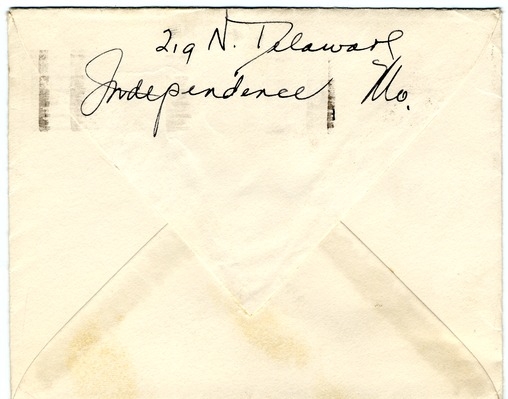 219 N. Delaware
Independence Mo.